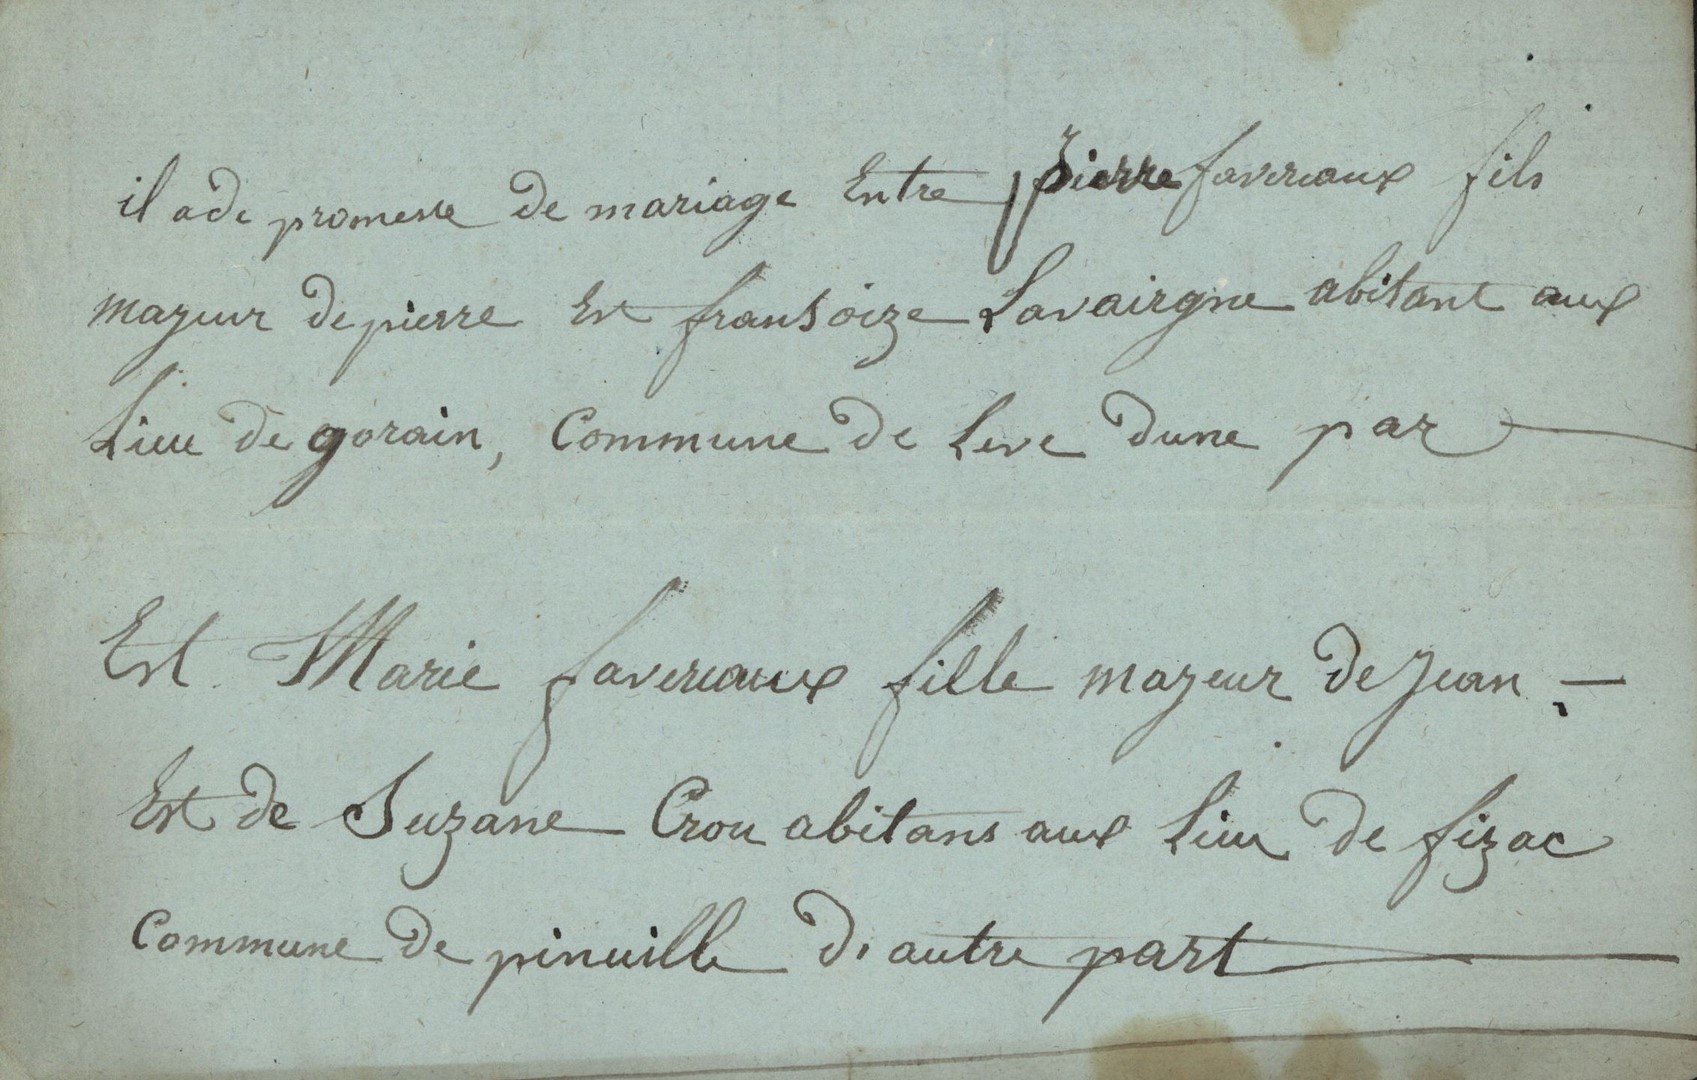 il a de promesse de mariage Entre pierre favereaux fils
majeur de pierre Est fransoize Lavairgne abitant aux
lieu de gorain, Commune de Leve dune par
Est Marie favereaux fille majeur de jean -
Est de Suzane Crou abitans aux lieu de fizac
Commune de pinuille d'autre part